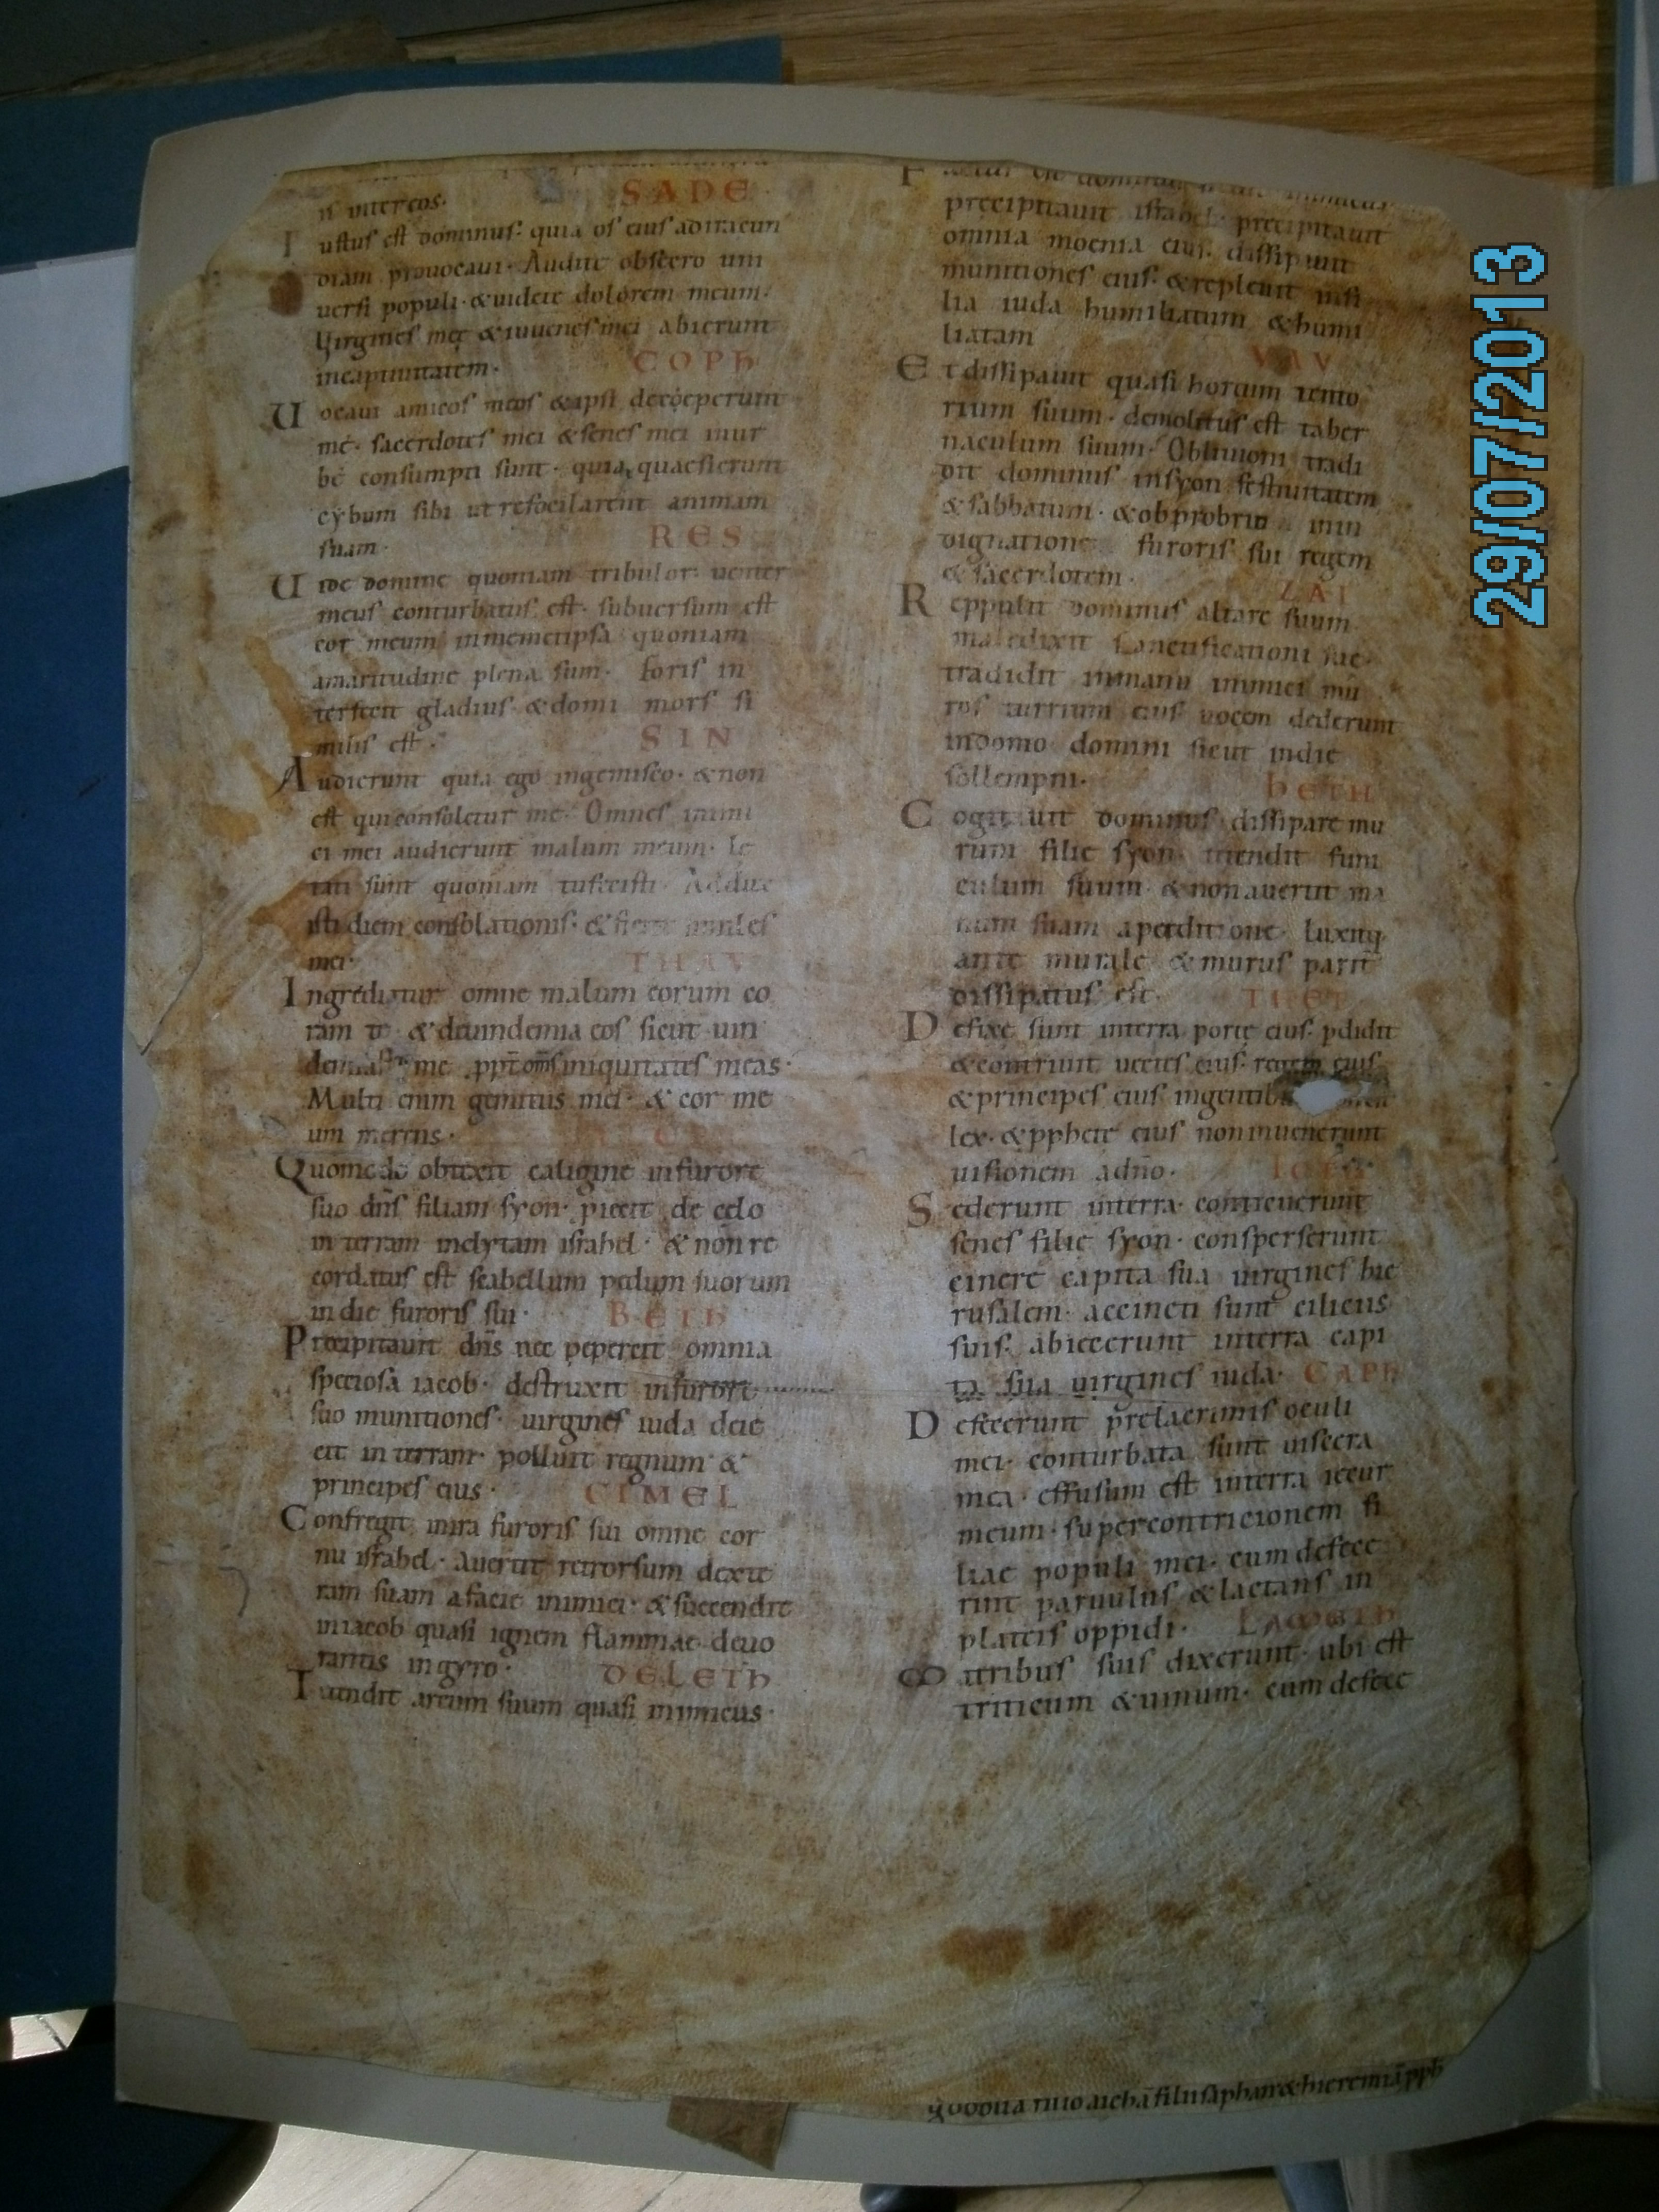 is inter eos. SADE
Iustus est dominus: quia os eius ad iracun
diam provocavi. Audite obsecro uni
versi populi & videte dolorem meum:
Virgines meę & iuvenes mei abierunt
in captivitatem. COPH
Uocavi amicos meos & ipsi deceperunt
me. sacerdotes mei & senes mei in ur
be consumpti sunt. quia quaesierunt
cybum sibi ut refocilarent animam
suam. RES
Uide domine quoniam tribulor: venter
meus conturbatus est. subversum est
cor meum in memetipsa quoniam
amaritudine plena sum. foris in
terficit gladius & domi mors si
milis est. SIN
Audierunt quia ego ingemisco. & non
est qui consoletur me. Omnes inimi
ci mei audierunt malum meum. le
tati sunt quoniam tu fecisti. Addux
isti diem consolationis. & fient similes
mei. THAV
Ingrediatur omne malum eorum co
ram te & devindemia eos sicut vin
me ppt oms iniquitates meas.
Multi enim gemitus mei. & cor me
um merens.
Quomodo obtexit caligine in furore
suo dns filiam syon. piecit de celo
in terram inclytam israhel. & non re
cordatus est scabellum pedum suorum
in die furoris sui. BETH
Precipitavit dns nec pepercit omnia
speciosa iacob. destruxit in furore
suo munitiones. virgines iuda deie
cit in terram. polluit regnum &
principes eius. GIMEL
Confregit in ira furoris sui omne cor
nu israhel. avertit retrorsum dexte
ram suam a facie inimici. & succendit
in iacob quasi ignem flammae devo
rantis in gyro. DELETH
Tetendit arcum suum quasi inimicus.
precipitavit israhel. precipitavit
omnia moenia eius. dissipavit
munitiones eius. & replevit in fi
lia iuda humiliatum & humi
liatam VAV
Et dissipavit quasi hortum tento
rium suum. demolitus est taber
naculum suum. Oblivioni tradi
dit dominus in syon festivitatem
& sabbatum. & obprobrio in in
dignatione furoris sui regem
& sacerdotem. ZAI
Reppulit dominus altare suum
maledixit sanctificationi suę.
tradidit in manu inimici mu
ros turrium eius. vocem dederunt
in domo domini sicut in die
sollempni. hETH
Cogitavit dominus dissipare mu
rum filię syon. tetendit funi
culum suum & non avertit ma
num suam a perditione. luxitq
ante murale & murus parit
dissipatus est. THET
Defixe sunt in terra portę eius. pdidit
& contrivit vectes eius. regem eius
& principes eius in gentib
lex. & pphetę eius non invenerunt
visionem a dno. IOTH
Sederunt in terra. conticuerunt
senes filię syon. consperserunt
cinere capita sua virgines hie
rusalem. accincti sunt ciliciis
suis. abiecerunt in terra capi
ta sua virgines iuda. CAPH
Defecerunt prę lacrimis oculi
mei. conturbata sunt viscera
mea. effusum est in terra iecur
meum. super contricionem fi
liae populi mei. cum defece
rint parvulus & lactans in
plateis oppidi. LAMETH
Matribus suis dixerunt. ubi est
triticum & vinum. cum defece
filii saphan & hieremia pph
29/07/2013